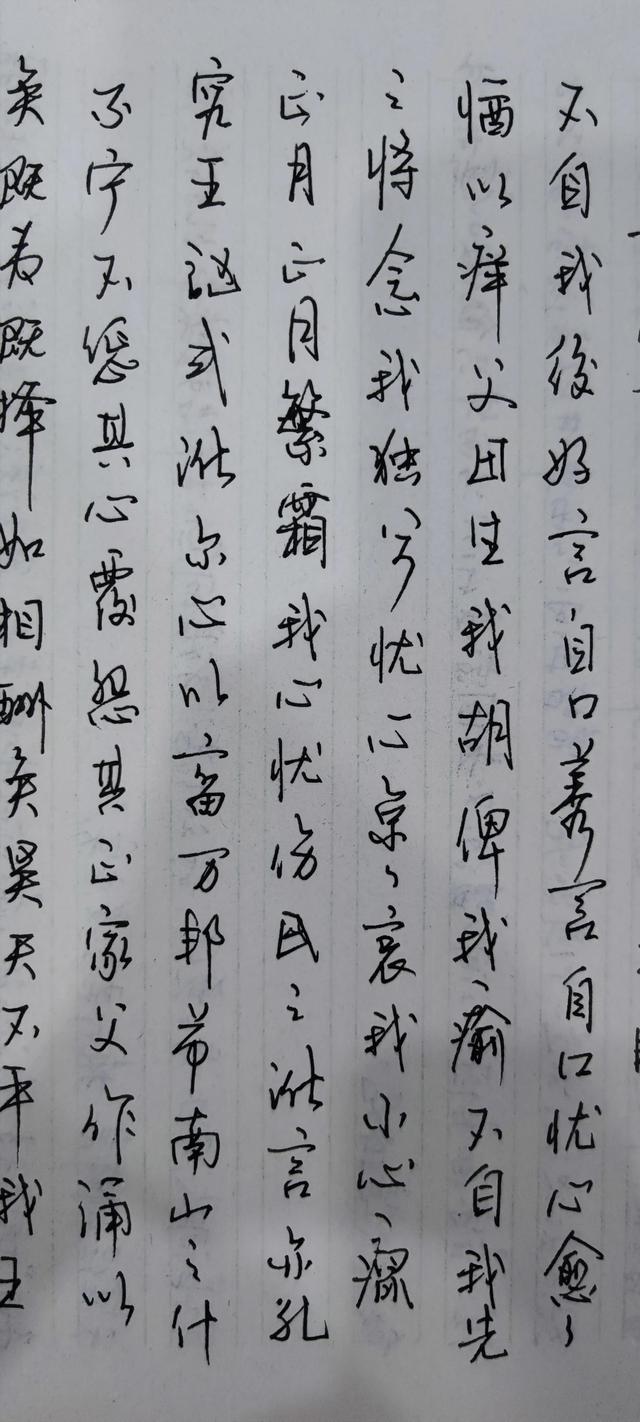 矣既夷既择如相酬矣昊天不平我王
不宁不惩其心覆怨其正家父作诵以
究王讻式讹尔心以畜万邦节南山之什
正月正月繁霜我心忧伤民之讹言亦孔
之将念我独兮忧心京々哀我小心、癙
以痒父母生我胡俾我、瘉不自我先
不自我後好言自口莠言自口忧心愈々